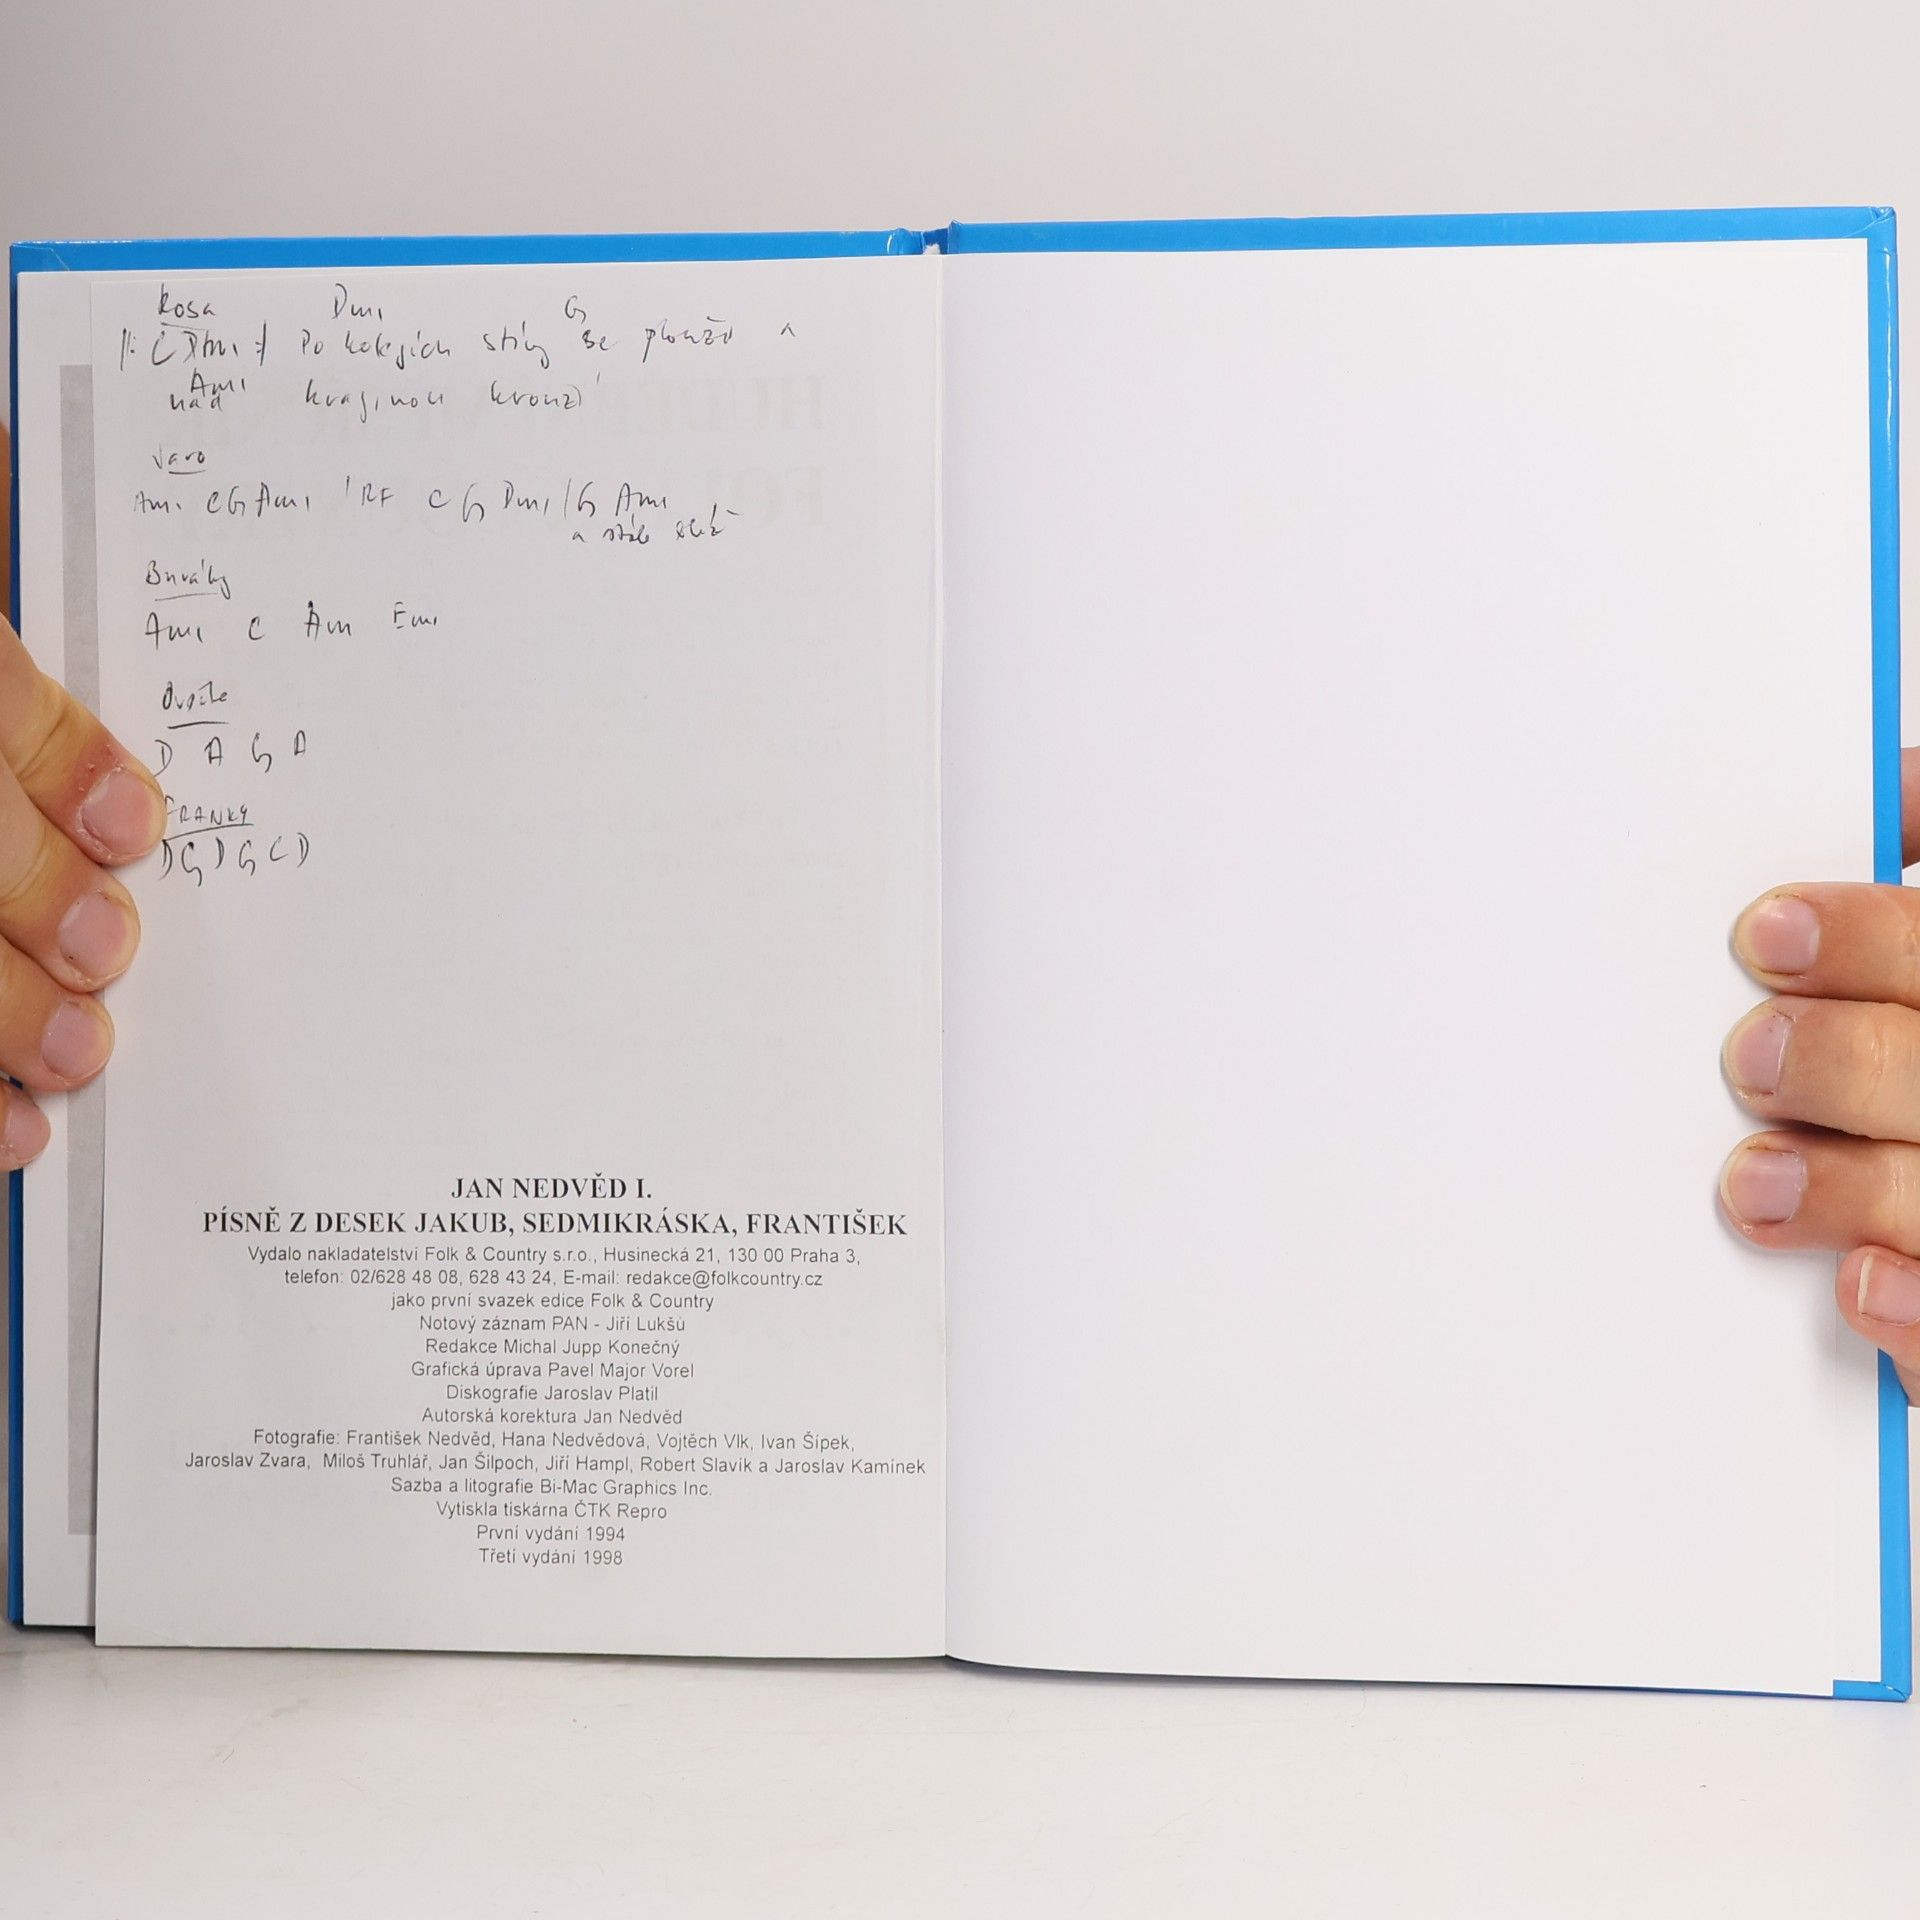 Rosa Dmi G
||: C Dmi :|| Po kolejích stíny se plouží a
Ami
nad krajinou krouží
Jaro
Ami C G Ami RF C G Dmi / G Ami
a stále
Buráky
Ami C Am Emi
D A G A
FRANKY
D G D G C D
JAN NEDVĚD I.
PÍSNĚ Z DESEK JAKUB, SEDMIKRÁSKA, FRANTIŠEK
Vydalo nakladatelství Folk & Country s.r.o., Husinecká 21, 130 00 Praha 3,
telefon: 02/628 48 08, 628 43 24, E-mail: redakce@folkcountry.cz
jako první svazek edice Folk & Country
Notový záznam PAN - Jiří Lukšů
Redakce Michal Jupp Konečný
Grafická úprava Pavel Major Vorel
Diskografie Jaroslav Platil
Autorská korektura Jan Nedvěd
Fotografie: František Nedvěd, Hana Nedvědová, Vojtěch Vlk, Ivan Šípek,
Jaroslav Zvara, Miloš Truhlář, Jan Šilpoch, Jiří Hampl, Robert Slavík a Jaroslav Kamínek
Sazba a litografie Bi-Mac Graphics Inc.
Vytiskla tiskárna ČTK Repro
První vydání 1994
Třetí vydání 1998